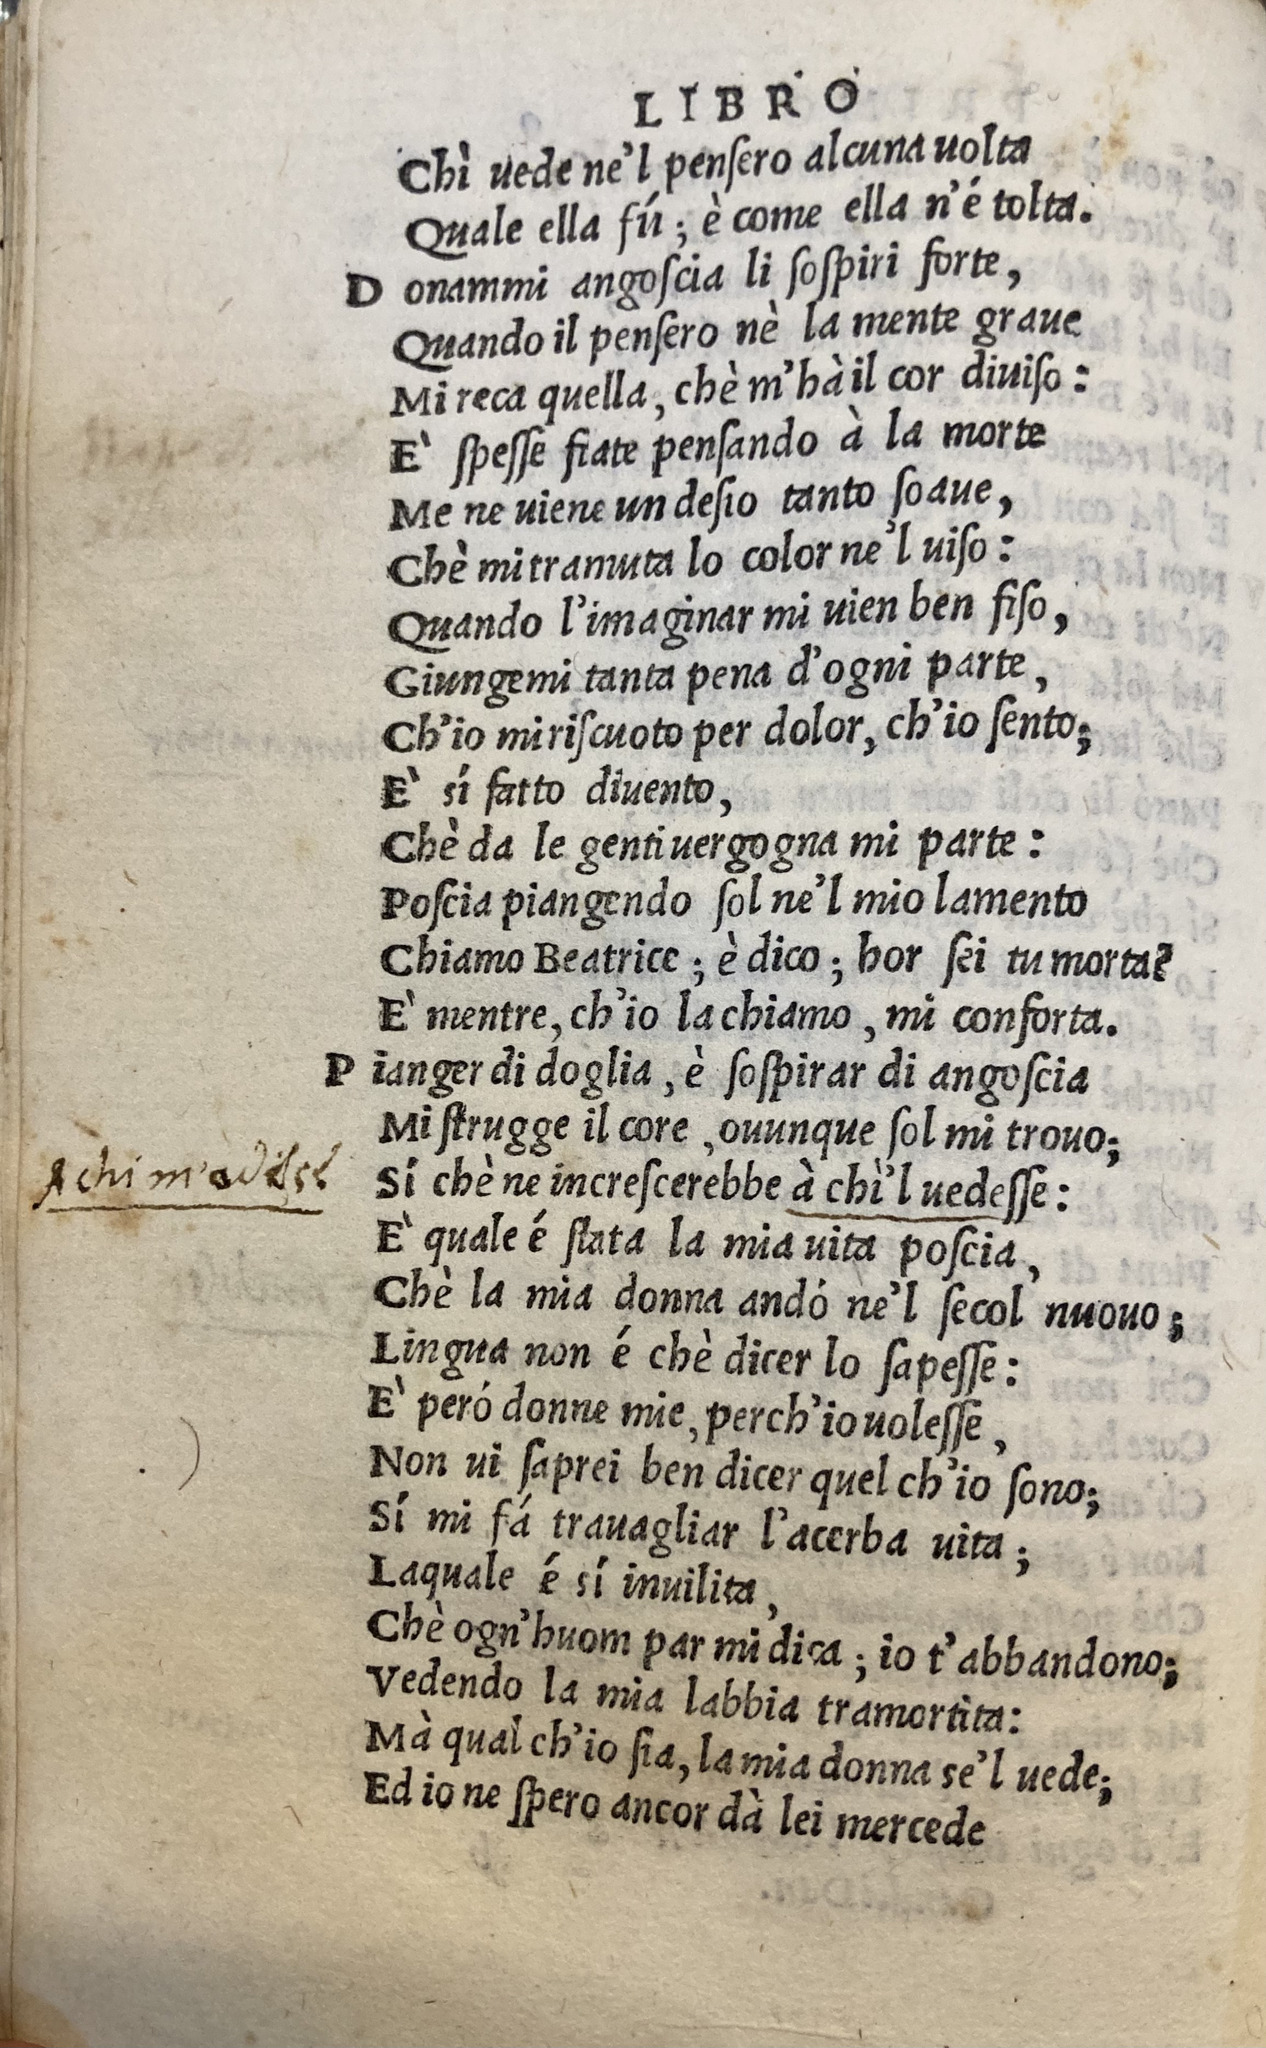 LIBRO
Chì uede ne'l penſero alcuna uolta
Quale ella fú; è come ella n'é tolta.
Donammi angoſcia li ſoſpiri forte,
Quando il penſero nè la mente graue
Mi reca quella, chè m'hà il cor diuiſo:
E' ſpeſſe fiate penſando à la morte
Me ne uiene un deſio tanto ſoaue,
Chè mi tramuta lo color ne'l uiſo:
Quando l'imaginar mi uien ben fiſo,
Giungemi tanta pena d'ogni parte,
Ch'io mi riſcuoto per dolor, ch'io ſento;
E' sí fatto diuento,
Chè da le genti uergogna mi parte:
Poſcia piangendo ſol ne'l mio lamento
Chiamo Beatrice; è dico; hor ſei tu morta?
E' mentre, ch'io la chiamo, mi conforta.
Pianger di doglia, è ſoſpirar di angoſcia
Mi ſtrugge il core, ouunque ſol mi trouo;
A chi m'
Sí chè ne increſcerebbe à chì'l uedeſſe:
E' quale é ſtata la mia uita poſcia,
Chè la mia donna andó ne'l ſecol nuouo;
Lingua non é chè dicer lo ſapeſſe:
E' peró donne mie, perch'io uoleſſe,
Non ui ſaprei ben dicer quel ch'io ſono;
Sí mi fá trauagliar l'acerba uita;
Laquale é sí inuilita,
Chè ogn'huom par mi dica; io t'abbandono;
Vedendo la mia labbia tramortita:
Mà qual ch'io ſia, la mia donna se'l uede;
Ed io ne ſpero ancor dà lei mercede